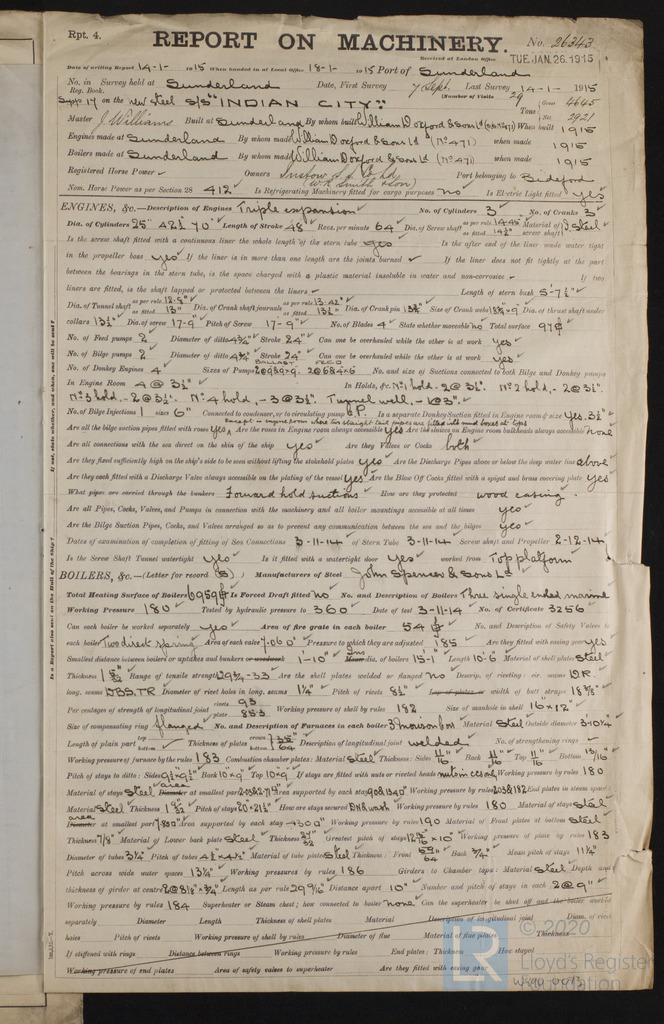 Rpt. 4.
REPORT ON MACHINERY.
No. 26343
Received at London Office TUE. JAN. 26. 1915
Date of writing Report 14-1- 1915 When handed in at Local Office 18-1- 1915 Port of Sunderland
No. in Survey held at Sunderland Date, First Survey 7 Sept. Last Survey 14-1- 1915
Reg. Book. (Number of Visits 29
on the new steel S/S "INDIAN CITY" Tons Gross 4645 Net 2921
Master J. Williams Built at Sunderland By whom built William Doxford & Sons Ld When built 1915
Engines made at Sunderland By whom made William Doxford & Sons Ld (No 471) when made 1915
Boilers made at Sunderland By whom made William Doxford & Sons Ld (No 471) when made 1915
Registered Horse Power Owners Port belonging to Bideford
Nom. Horse Power as per Section 28 412 Is Refrigerating Machinery fitted for cargo purposes no Is Electric Light fitted yes
ENGINES, &c.—Description of Engines Triple expansion No. of Cylinders 3 No. of Cranks 3
Dia. of Cylinders 25" 42½" 70" Length of Stroke 48" Revs. per minute 64 Dia. of Screw shaft as per rule as fitted Material of screw shaft Steel
Is the screw shaft fitted with a continuous liner the whole length of the stern tube yes Is the after end of the liner made water tight
in the propeller boss yes If the liner is in more than one length are the joints burned If the liner does not fit tightly at the part
between the bearings in the stern tube, is the space charged with a plastic material insoluble in water and non-corrosive If two
liners are fitted, is the shaft lapped or protected between the liners Length of stern bush 5'-7½"
Dia. of Tunnel shaft as per rule as fitted 13" Dia. of Crank shaft journals as per rule as fitted Dia. of Crank pin Size of Crank webs Dia. of thrust shaft under
collars 13½" Dia. of screw 17-9" Pitch of Screw 17-9" No. of Blades 4 State whether moveable no Total surface 97
No. of Feed pumps 2 Diameter of ditto Stroke 24" Can one be overhauled while the other is at work yes
No. of Bilge pumps 2 Diameter of ditto Stroke 24" Can one be overhauled while the other is at work yes
No. of Donkey Engines 4 Sizes of Pumps BALLAST FEED No. and size of Suctions connected to both Bilge and Donkey pumps
In Engine Room 4 @ 3½" In Holds, &c. No 1 hold - 2 @ 3½". No 2 hold, - 2 @ 3½".
No 3 hold, - 2 @ 3½". No 4 hold, - 3 @ 3½". Tunnel well, - 1 @ 3".
No. of Bilge Injections 1 sizes 6" Connected to condenser, or to circulating pump C.P. Is a separate Donkey Suction fitted in Engine room & size Yes. 3½"
Are all the bilge suction pipes fitted with roses yes Are the roses in Engine room always accessible yes Are the sluices on Engine room bulkheads always accessible none
Are all connections with the sea direct on the skin of the ship yes Are they Valves or Cocks both
Are they fixed sufficiently high on the ship's side to be seen without lifting the stokehold plates yes Are the Discharge Pipes above or below the deep water line above
Are they each fitted with a Discharge Valve always accessible on the plating of the vessel yes Are the Blow Off Cocks fitted with a spigot and brass covering plate yes
What pipes are carried through the bunkers Forward hold suctions How are they protected wood casing.
Are all Pipes, Cocks, Valves, and Pumps in connection with the machinery and all boiler mountings accessible at all times yes
Are the Bilge Suction Pipes, Cocks, and Valves arranged so as to prevent any communication between the sea and the bilges yes
Dates of examination of completion of fitting of Sea Connections 3-11-14 of Stern Tube 3-11-14 Screw shaft and Propeller 2-12-14
Is the Screw Shaft Tunnel watertight yes Is it fitted with a watertight door yes worked from Top platform
BOILERS, &c.—(Letter for record (S)) Manufacturers of Steel John Spencer & Sons Ld
Total Heating Surface of Boilers 6959 Is Forced Draft fitted no No. and Description of Boilers Three single ended marine
Working Pressure 180 Tested by hydraulic pressure to 360 Date of test 3-11-14 No. of Certificate 3256
Can each boiler be worked separately yes Area of fire grate in each boiler 54 No. and Description of Safety Valves to
each boiler Two direct spring Area of each valve 7.060" Pressure to which they are adjusted 185 Are they fitted with easing gear yes
Smallest distance between boilers or uptakes and bunkers or woodwork 1'-10" dia. of boilers 15'-1" Length 10'-6" Material of shell plates Steel
Thickness Range of tensile strength Are the shell plates welded or flanged no Descrip. of riveting: cir. seams D.R.
long. seams D.B.S.T.R. Diameter of rivet holes in long. seams 1¼" Pitch of rivets 8½" Lap of plates or width of butt straps
Per centages of strength of longitudinal joint rivets 93 plate 85.3 Working pressure of shell by rules 182 Size of manhole in shell 16" × 12"
Size of compensating ring flanged No. and Description of Furnaces in each boiler 3 Morison Material Steel Outside diameter 3-10¼"
Length of plain part top bottom Thickness of plates crown bottom 35/64 Description of longitudinal joint welded No. of strengthening rings
Working pressure of furnace by the rules 183 Combustion chamber plates: Material Steel Thickness: Sides 11/16" Back 11/16" Top 11/16" Bottom 13/16"
Pitch of stays to ditto: Sides Back 10 × 9" Top 10 × 9" If stays are fitted with nuts or riveted heads Working pressure by rules 180
Material of stays Steel area at smallest part Area supported by each stay Working pressure by rules End plates in steam space:
Material Steel Thickness Pitch of stays 20 × 21½" How are stays secured D.N. & wash Working pressure by rules 180 Material of stays Steel
area at smallest part Area supported by each stay Working pressure by rules 190 Material of Front plates at bottom Steel
Thickness 7/8" Material of Lower back plate Steel Thickness Greatest pitch of stays Working pressure of plate by rules 183
Diameter of tubes 3¼" Pitch of tubes 4½ × 4½" Material of tube plates Steel Thickness: Front Back ¾" Mean pitch of stays 11¼"
Pitch across wide water spaces 13¾" Working pressures by rules 186 Girders to Chamber tops: Material Steel Depth and
thickness of girder at centre Length as per rule Distance apart 10" Number and pitch of stays in each 2 @ 9"
Working pressure by rules 184 Superheater or Steam chest; how connected to boiler none Can the superheater be shut off and the boiler worked
separately Diameter Length Thickness of shell plates Material Description of longitudinal joint Diam. of rivet
holes Pitch of rivets Working pressure of shell by rules Diameter of flue Material of flue plates Thickness
If stiffened with rings Distance between rings Working pressure by rules End plates: Thickness How stayed
Working pressure of end plates Area of safety valves to superheater Are they fitted with easing gear
© 2020
LR
Lloyd's Register
Foundation